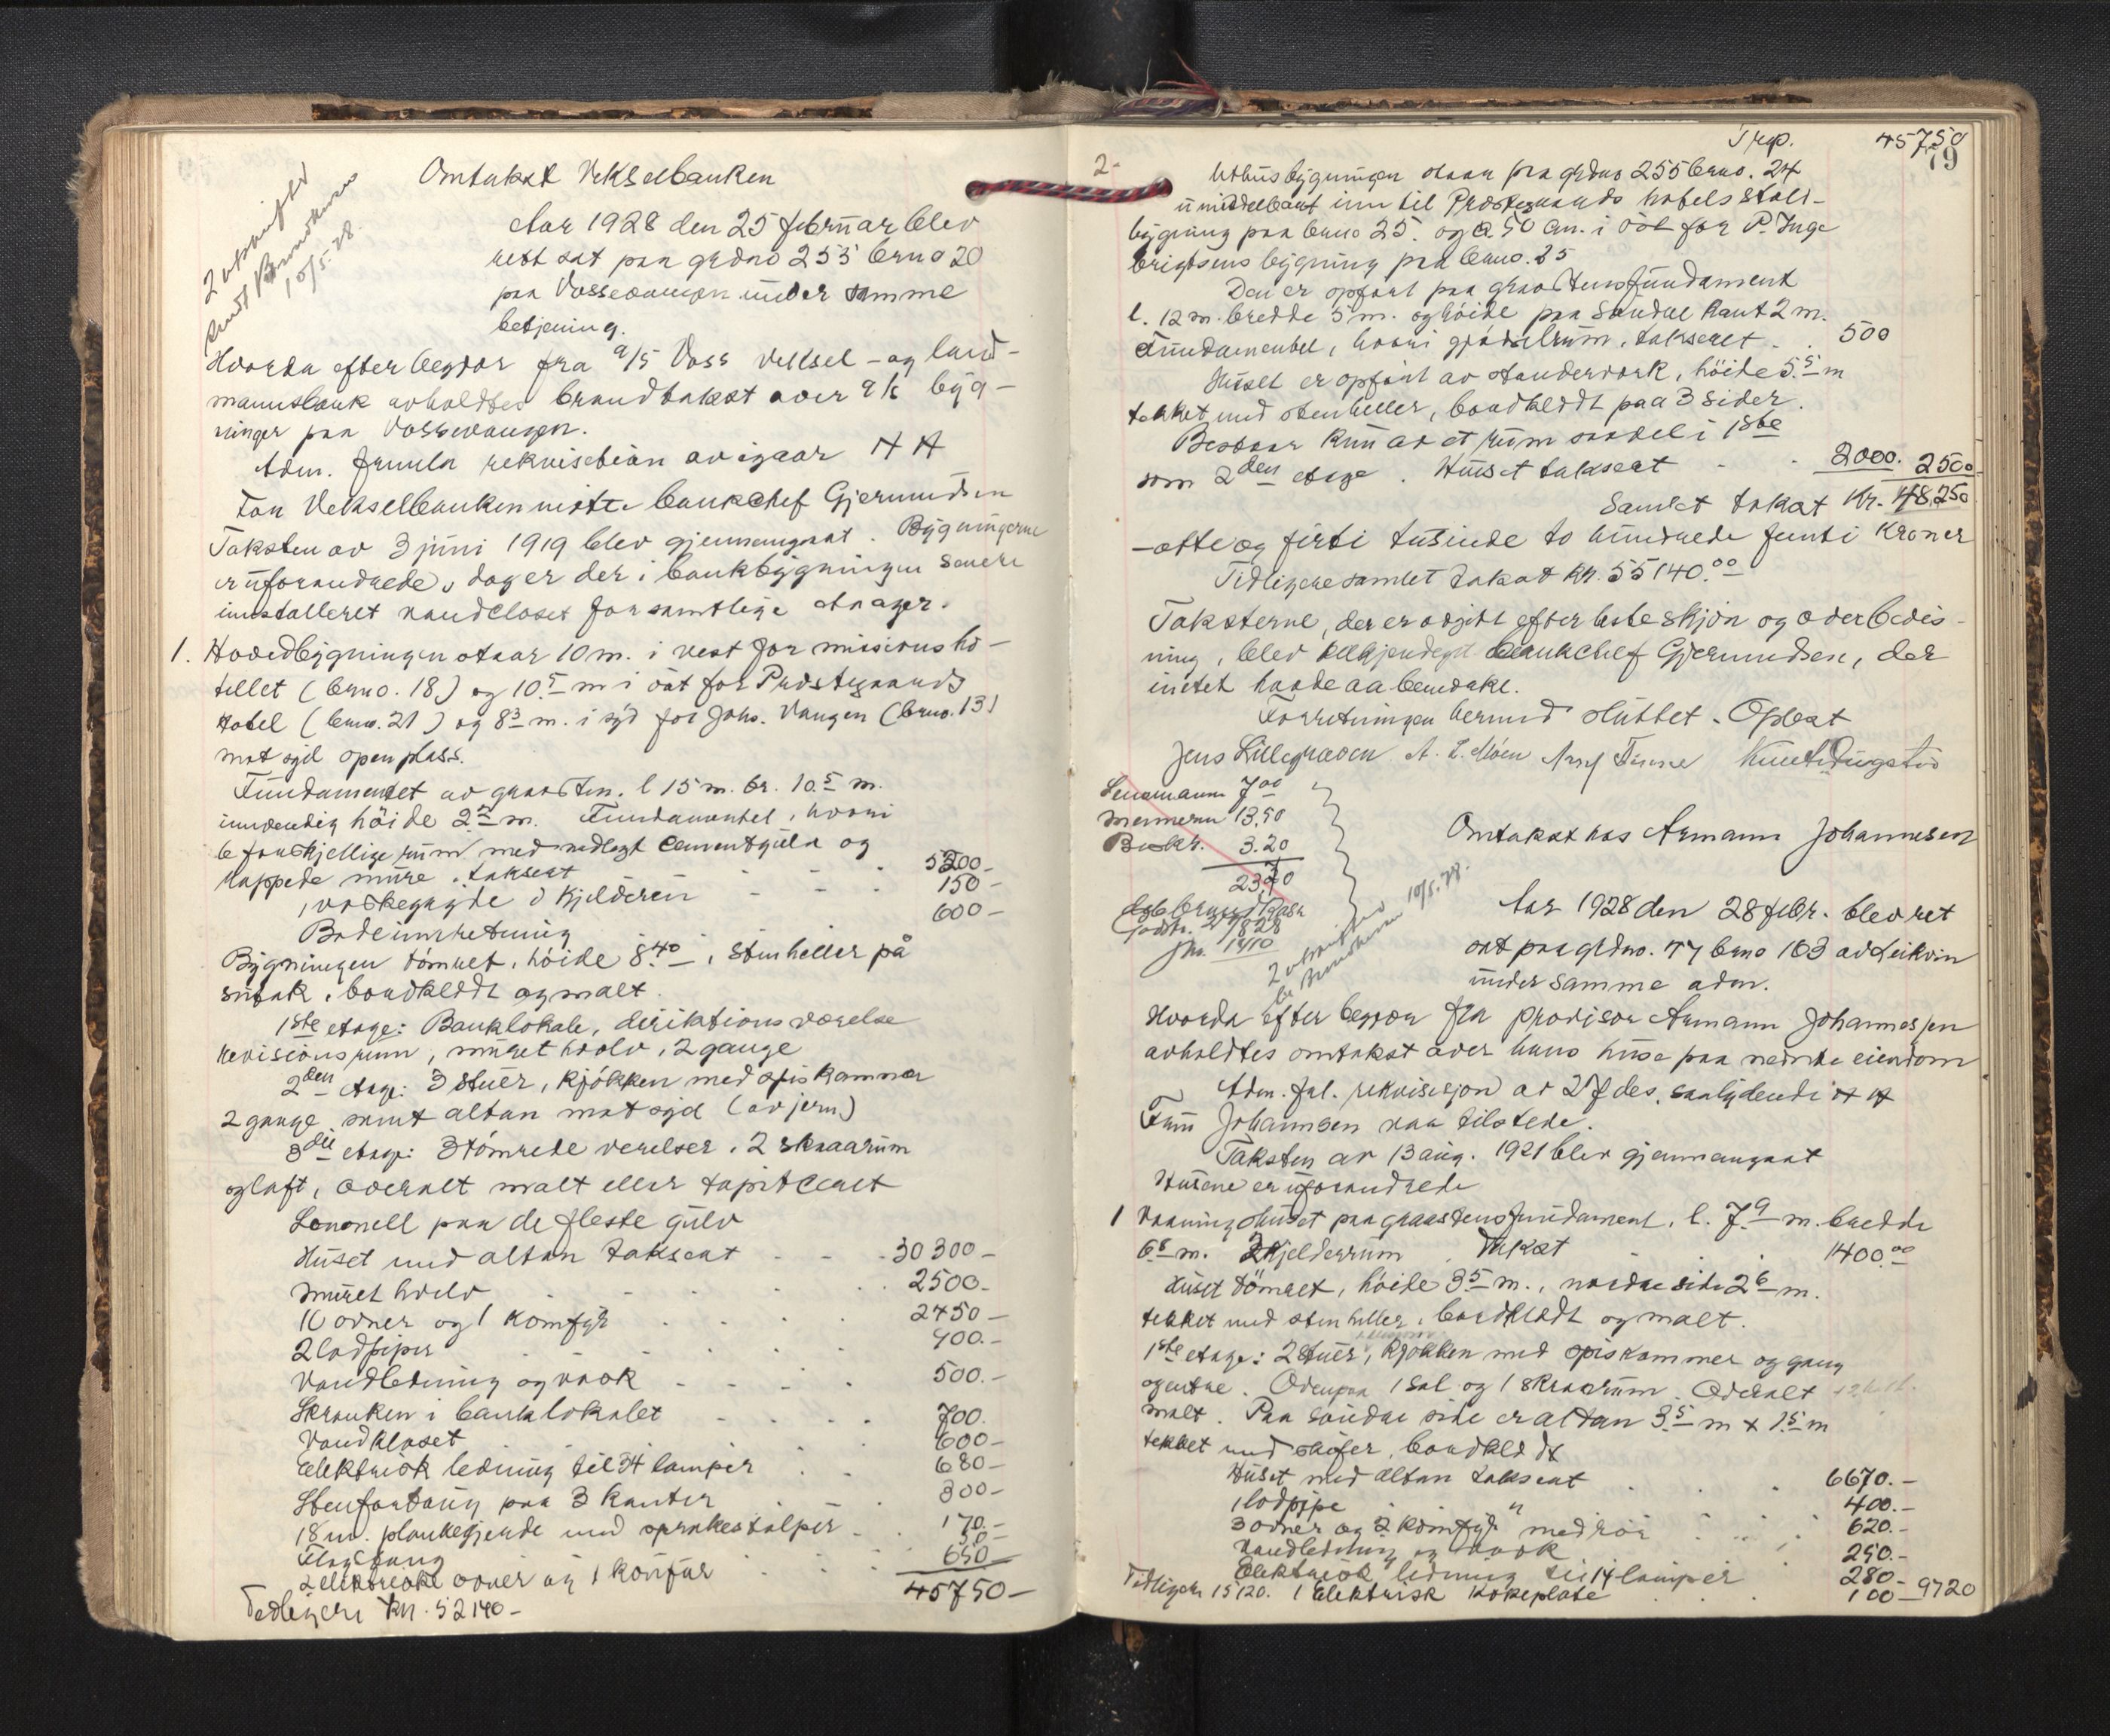 2 avskrifter
sendt Brandkassen
10/5. 28.
Omtakst Vekselbanken
Aar 1928 den 25 februar blev
rett sat paa grdno 255 brno 20
paa Vossevangen under samme
betjening.
Hvorda efter begjær fra a/s Voss Veksel- og land-
mannsbank avholdtes brandtakst over a/s byg-
ninger paa Vossevangen.
Adm. fremla rekvisition av igaar H H
For Vekselbanken møtte bankchef Gjermundsen
Taksten av 3 juni 1919 blev gjennemgaat. Bygningerne
er uforandrede, dog er der i bankbygningen senere
installeret vandcloset for samtlige etager.
1. Hovedbygningen staar 10 m. i vest for misionsho-
tellet (brno. 18) og 10.5 m i øst for Prestegaards
Hotel (brno. 21) og 8.3 m. i syd for Johs. Vangen (brno. 13)
mot syd open plass.
Fundamentet av graasten. l 15 m. br. 10.5 m.
innvendig høide 2.2 m. Fundamentet, hvori
6 forskjellige rum med nedlagt cementgulv og
kappede mure, takseret - - - 5200 -
1 vaskegryde i kjelderen - - - 150 -
Badeinnretning 600 -
Bygningen tømret, høide 8.40, stenheller på
sutak, bordkledt og malt.
1ste etage: Banklokale, direktionsværelse
revisionsrum, muret hvelv, 2 gange
2den etage: 3 stuer, kjøkken med spiskammer
2 gange samt altan mot syd (av jern)
3die etage: 3 tømrede verelser, 2 skraarum
og loft, overalt malt eller tapitceret
Lenonell paa de fleste gulv
Huset med altan takseret - - - 30300 -
Muret hvelv - - - 2500 -
10 ovner og 1 komfyr - - - 2450 -
2 lodpiper - - - 900. -
Vandledning og vask - - - 500. -
Skranken i banklokalet - - - 700.
Vandkloset 600 -
Elektrisk ledning til 34 lamper - - 680 -
Stenfortaug paa 3 kanter - - 300 -
18 m. plankegjerde med sprakestolper - - 170. -
Flagstang 50 -
2 elektriske ovner og 1 komfur - - - 650
45750 -
Tidligere kr. 52140 -
Trsp. 45750
79
2- Uthusbygningen staar paa grdno 255 brno. 24
umiddelbart inn til Prestegaards hotels stall-
bygning paa brno 25. og 0.50 cm. i øst for P. Inge
brigtsens bygning paa brno. 25
Den er opført paa graastensfundament
l. 12 m. bredde 5 m. og høide paa søndre kant 2 m.
Fundamentet, hvori gjødselrum, takseret - . 500
Huset er opført av stenderverk, høide 5.5 m
tekket med stenheller, bordkledt paa 3 sider.
Bestaar kun av et rum saavel i 1ste
som 2den etage. Huset takseret - - 2000. 2500
Samlet takst Kr. 48250
-otte og firti tusinde to hundrede femti Kroner
Tidligere samlet takst kr. 55140.00
Taksterne, der er avgitt efter beste skjøn og overbevis-
ning, blev bankchef Gjermundsen, der
inntet havde aa bemerke.
Forretningen hermed sluttet. Oplæst
Jens Lillegraven A. L. Moen Finne
Lensmannen 7.00
Mennerne 13.50
Buskr. 3.20
23,70
Omtakst hos Armann Johannesen
2 avskrifter
til Brandkassen 10/5. 28.
Aar 1928 den 28 febr. blev ret
sat paa grdno. 47 brno 163 av Leikvin
under samme adm.
Hvorda efter begjær fra provisor Armann Johannessen
avholdtes omtakst over hans huse paa nevnte eiendom
Adm. fol. rekvisisjon av 27 des. saalydende H H
Fru Johannsen var tilstede.
Taksten av 13 aug. 1921 blev gjennemgaat
Husene er uforandrede
1 Vaaningshuset paa graastensfundament, l. 7.9 m. bredde
6.8 m. 2 kjelderrum. Takst - - - 1400.00
Huset tømret, høide 3.5 m., nordre side 2.6 m.
tekket med stenheller, bordkledt og malt.
1ste etage: 2 stuer, kjøkken med spiskammer og gang
og entre. Ovenpaa 1 sal og 1 skraarum. Overalt
malt. Paa søndre side er altan 3.5 m x 1.5 m
tekket med skifer, bordkledt
Huset med altan takseret - - - 6670. -
1 lodpipe " 400. -
3 ovner og 2 komfyr " med rør - - - 620. -
Vandledning og vask 250. -
Elektrisk ledning til 14 lamper 280 -
Tidligere 15120. 1 Elektrisk kokeplate - - - 100 - 9720